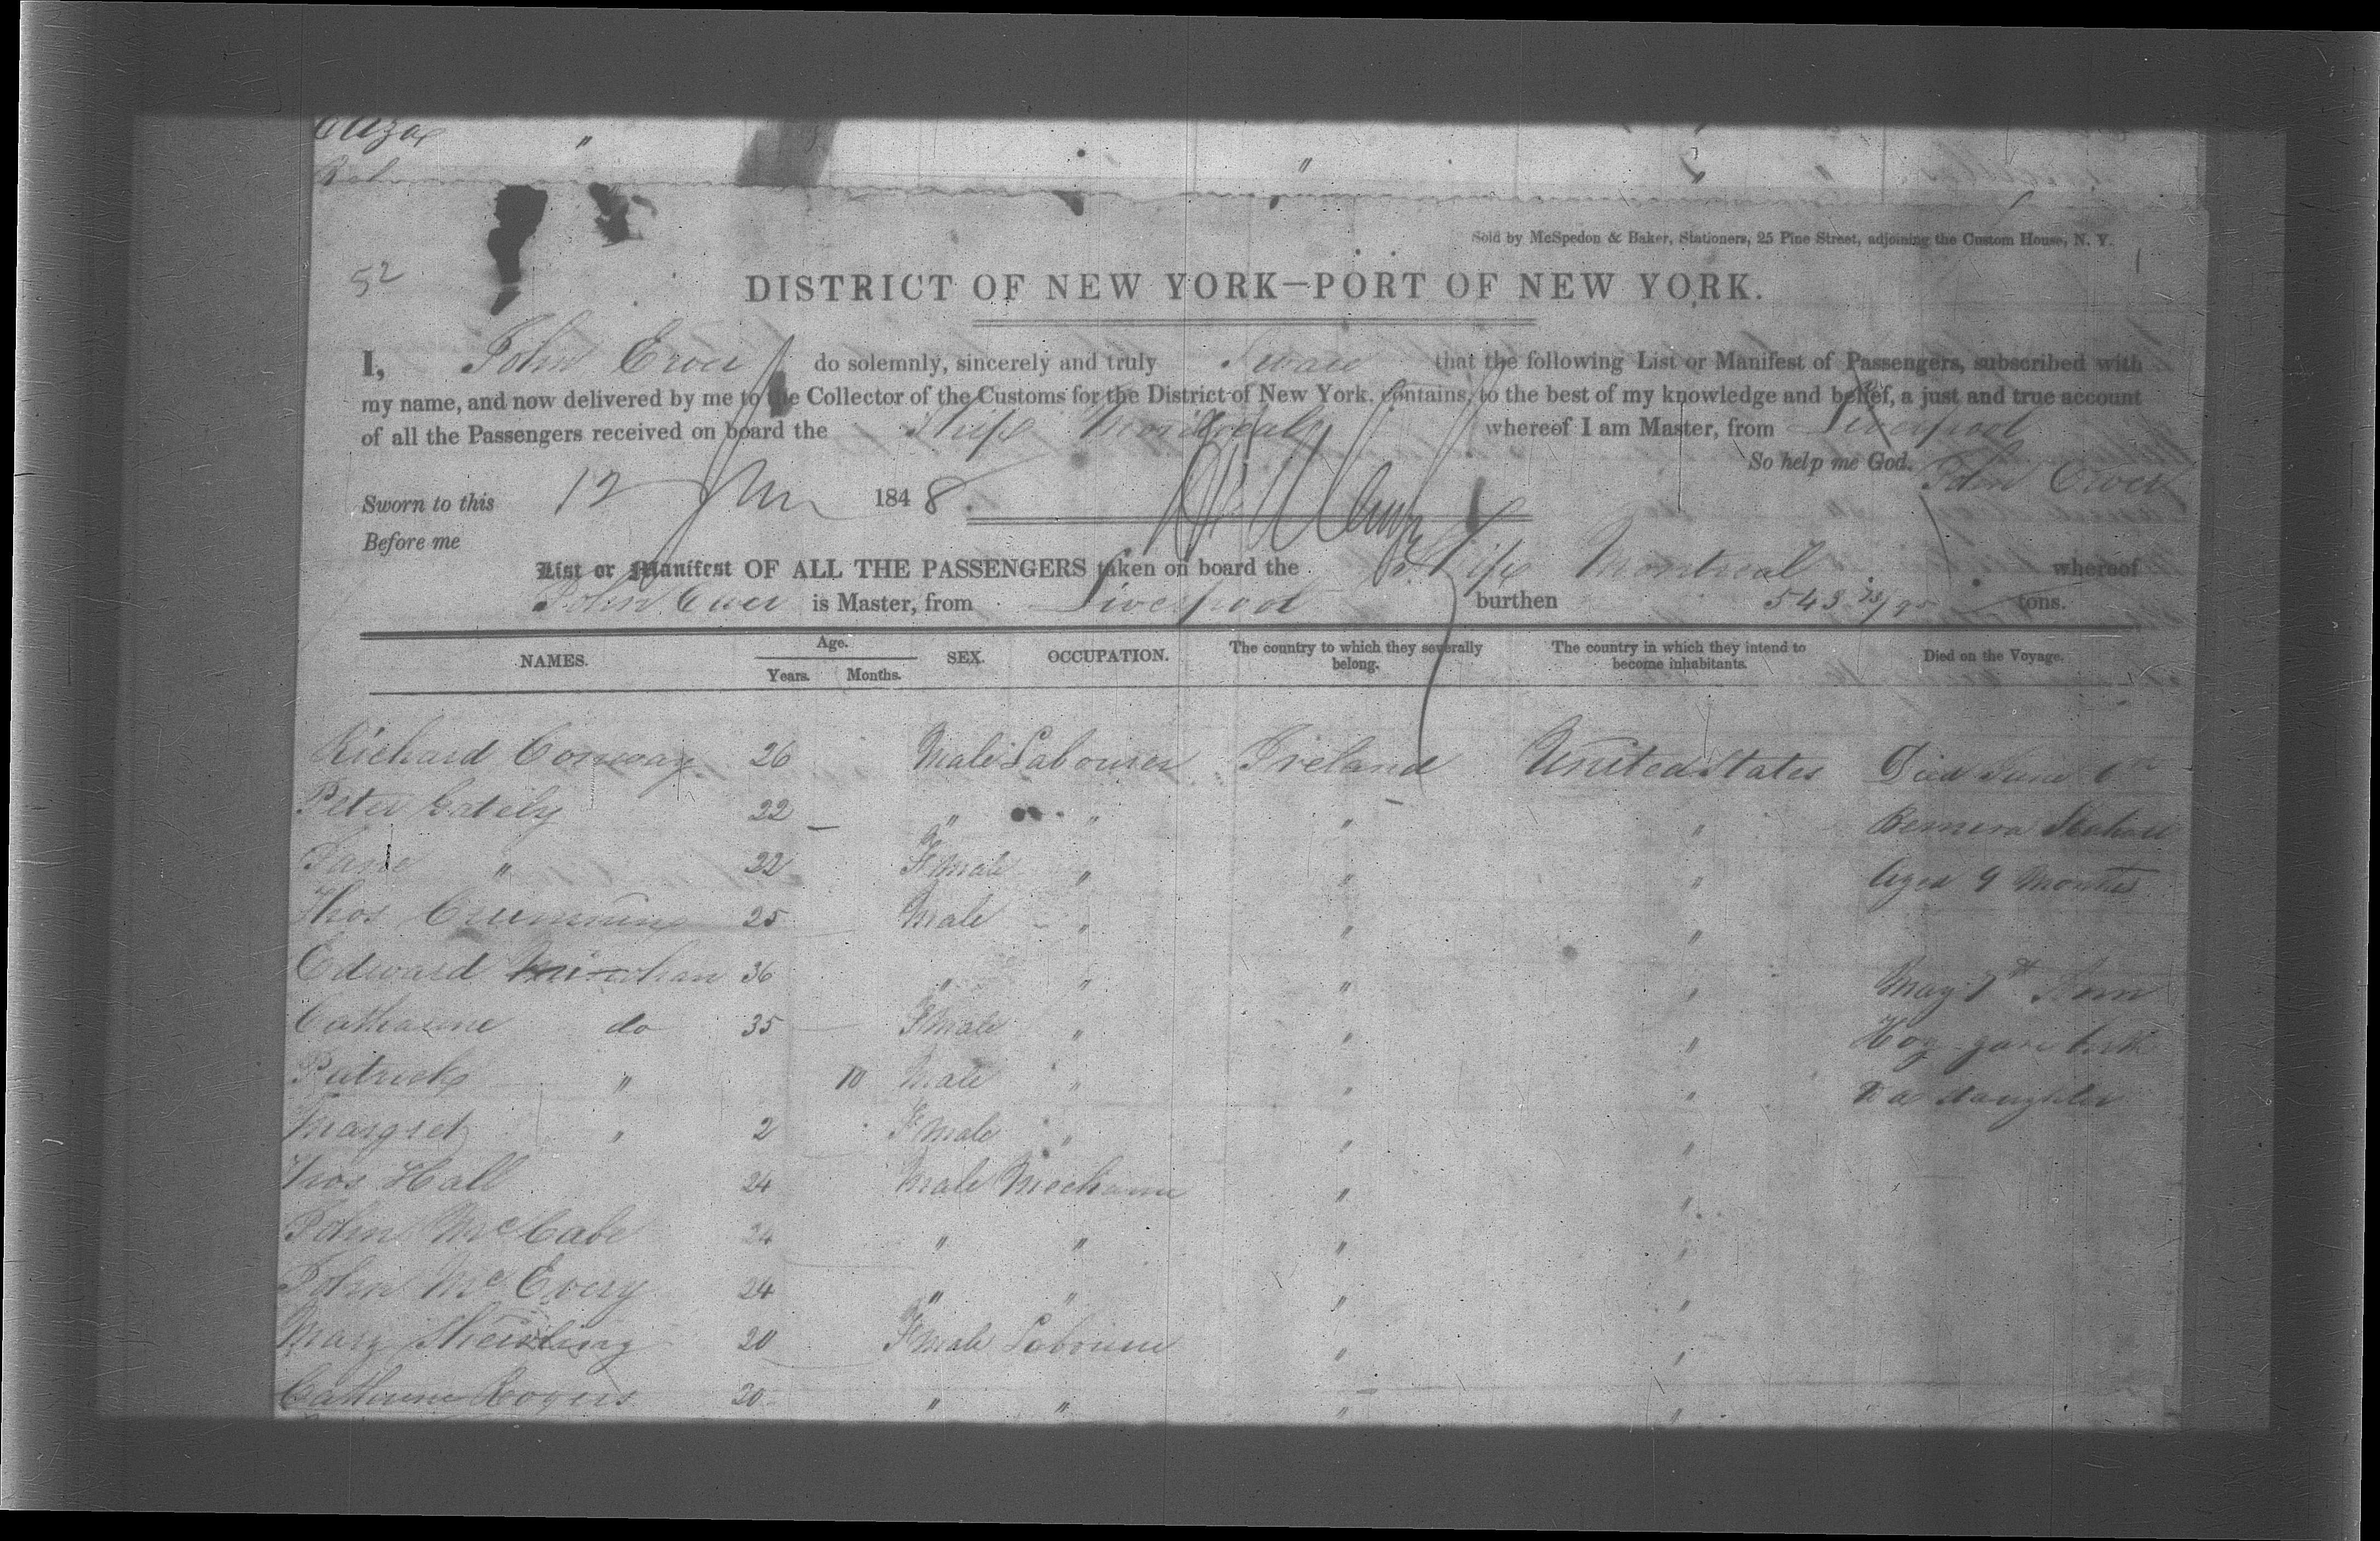 Eliza "
Sold by McSpedon & Baker, Stationers, 25 Pine Street, adjoining the Custom House, N. Y.
52
DISTRICT OF NEW YORK—PORT OF NEW YORK.
I, John Ewer do solemnly, sincerely and truly Swear that the following List or Manifest of Passengers, subscribed with
my name, and now delivered by me to the Collector of the Customs for the District of New York, contains, to the best of my knowledge and belief, a just and true account
of all the Passengers received on board the Ship Montreal whereof I am Master, from Liverpool
So help me God. John Ewer
Sworn to this 12 June 1848.
Before me
List or Manifest OF ALL THE PASSENGERS taken on board the Ship Montreal whereof
John Ewer is Master, from Liverpool burthen 543 tons.
NAMES. Age. Years. Months. SEX. OCCUPATION. The country to which they severally belong. The country in which they intend to become inhabitants. Died on the Voyage.
Richard Conway 26 Male Labourer Ireland United States Died June 6th
Peter Gately 22 " " " "
Jane " 22 Female " " " Aged 9 Months
Thos Crummins 25 Male " " "
Edward 36 " " " " May 7th Ann
Catharine do 35 Female " " " Hoy gave birth
Patrick " 10 Male " " " to a daughter
Margret " 2 Female " " "
Thos Hall 24 Male Mechanic " "
John McCabe 24 " " " "
John McEvery 24 " " " "
Mary 20 Female Labourer " "
Catherine Rogers 20 " " " "